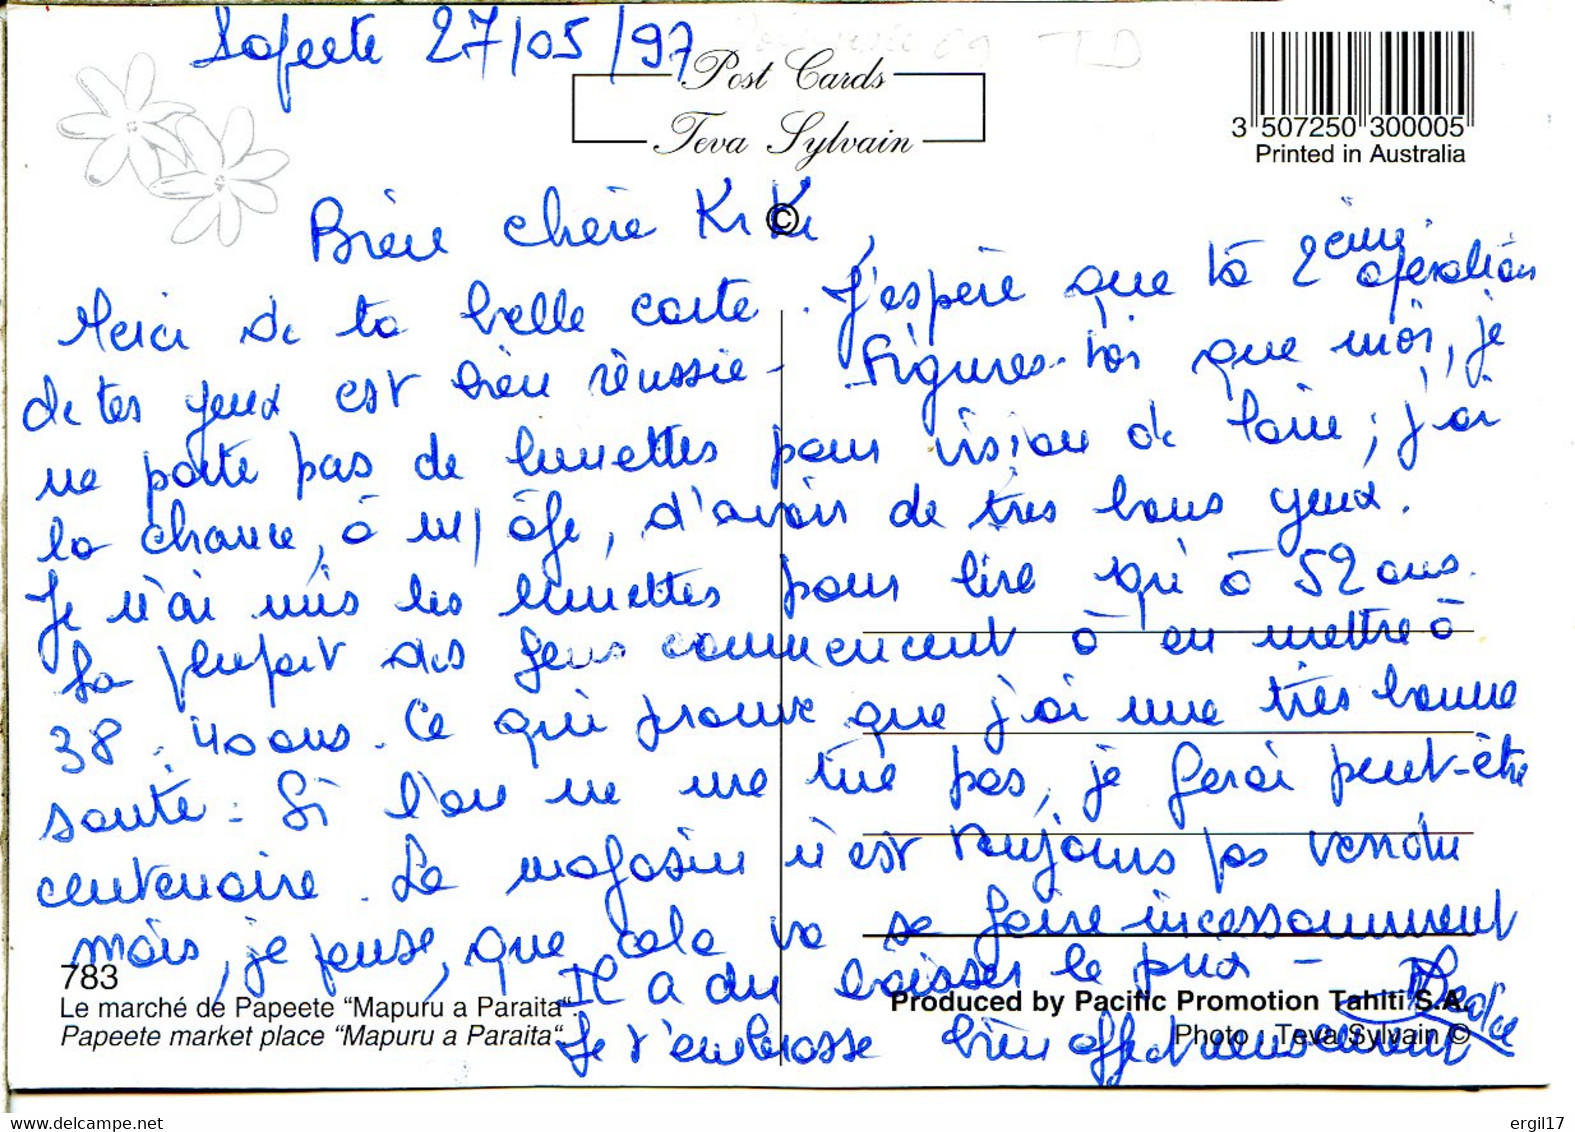 Papeete 27/05/97
Post Cards
Teva Sylvain
3 507250 300005
Printed in Australia
Bien chère KiKi,
Merci de ta belle carte. J'espère que ta 2ème opération
de tes yeux est bien réussie - Figures-toi que moi, je
ne porte pas de lunettes pour vision de loin ; j'ai
la chance, à m/ âge, d'avoir de très bons yeux.
Je n'ai mis les lunettes pour lire qu'à 52 ans.
La plupart des gens commencent à en mettre à
38 . 40 ans. Ce qui prouve que j'ai une très bonne
santé. Si l'on ne me tue pas, je serai peut-être
centenaire. Le magasin n'est toujours pas vendu
mais, je pense, que cela va se faire incessamment
Il a du baisser le prix -
Je t'embrasse bien affectueusement
783
Le marché de Papeete “Mapuru a Paraita“.
Papeete market place “Mapuru a Paraita“.
Produced by Pacific Promotion Tahiti S.A.
Photo : Teva Sylvain ©
ergil17